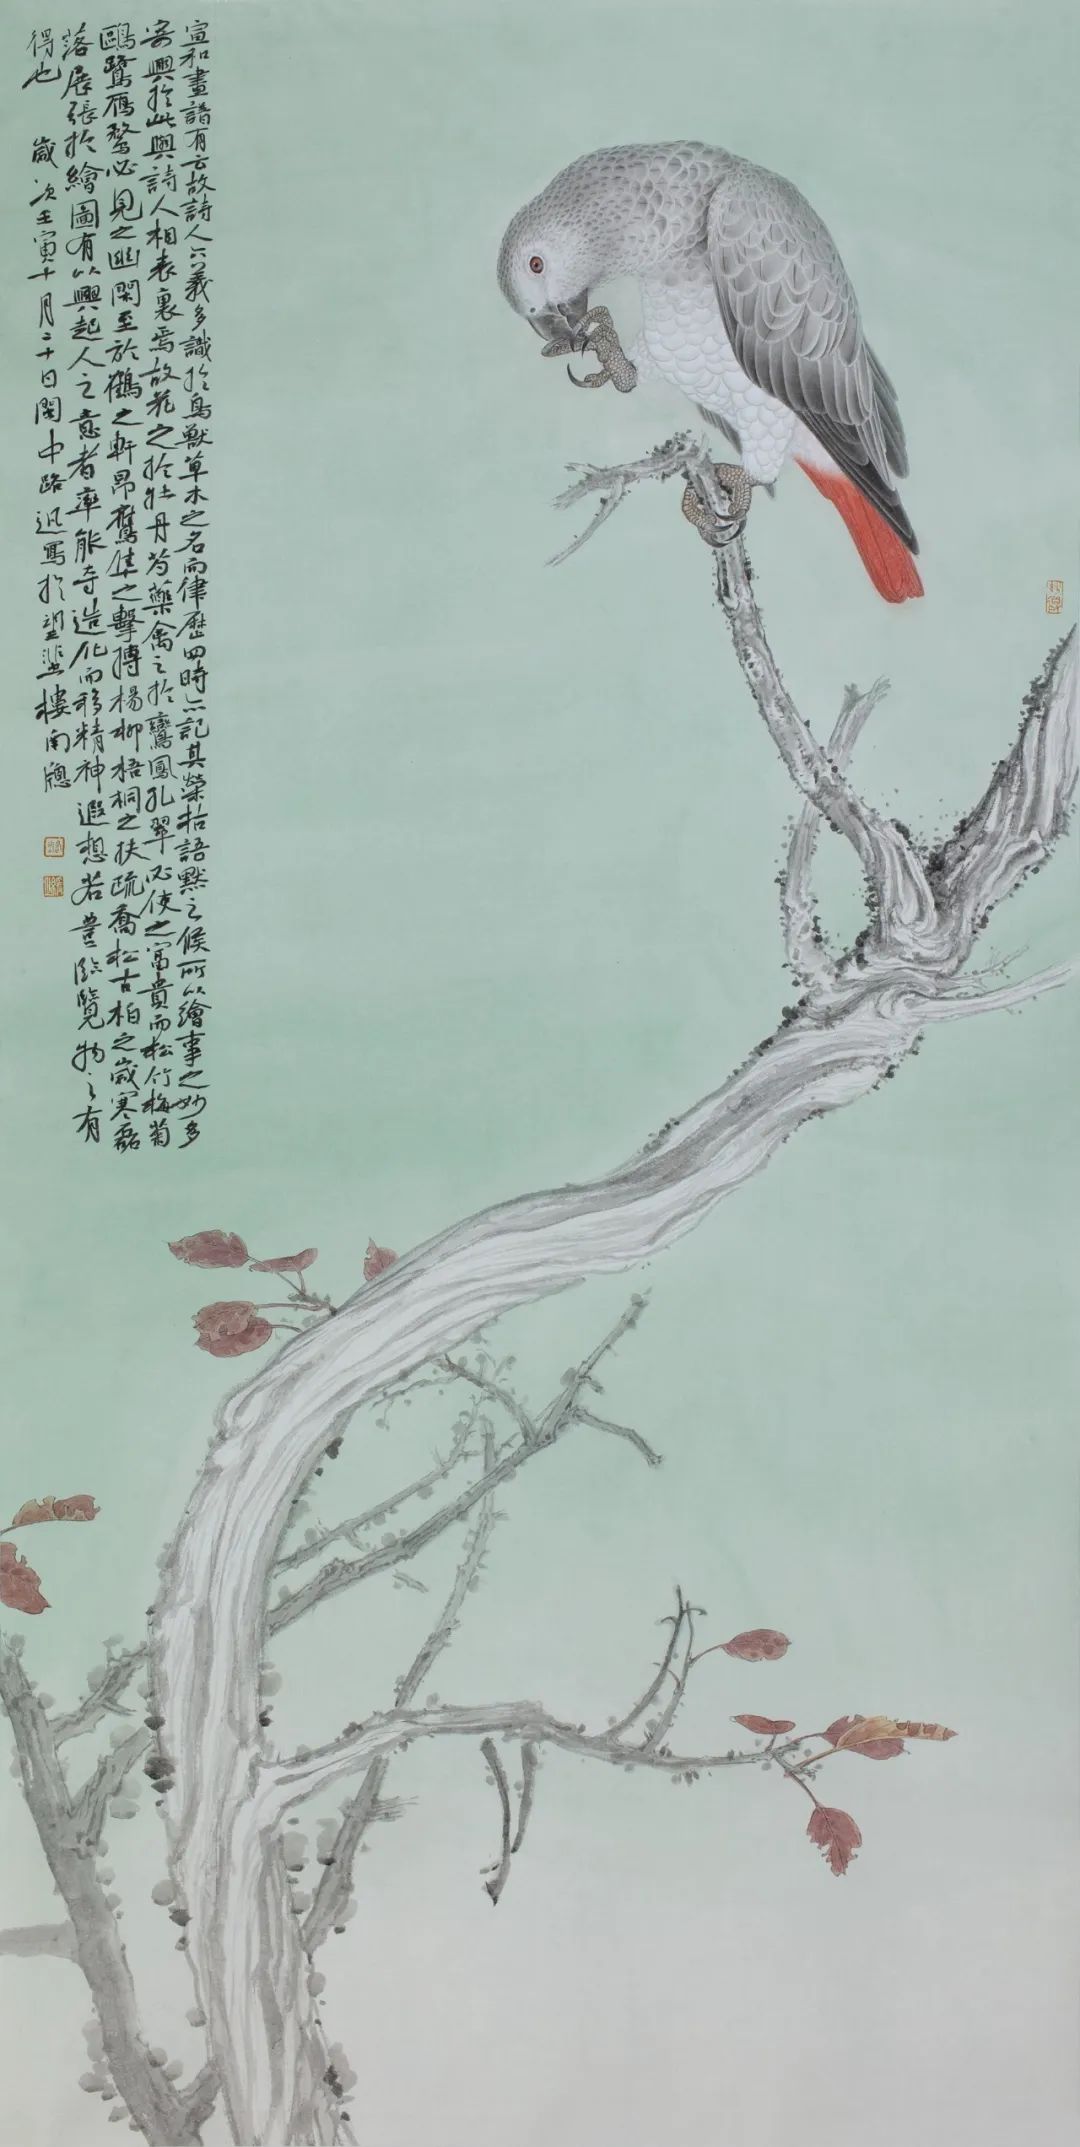 宣和畫譜有云故詩人六義多識於鳥獸草木之名而律歷四時亦記其榮枯語默之候所以繪事之妙多
寄興於此與詩人相表裏焉故花之於牡丹芍藥禽之於鸞鳳孔翠必使之富貴而松竹梅菊
鷗鷺雁鶩必見之幽閑至於鶴之軒昂鷹隼之擊搏楊柳梧桐之扶疏喬松古柏之歲寒磊
落展張於繪圖有以興起人之意者率能奪造化而移精神遐想若登臨覽物之有
得也 歲次壬寅十月二十日中路迅寫於望樓南窗